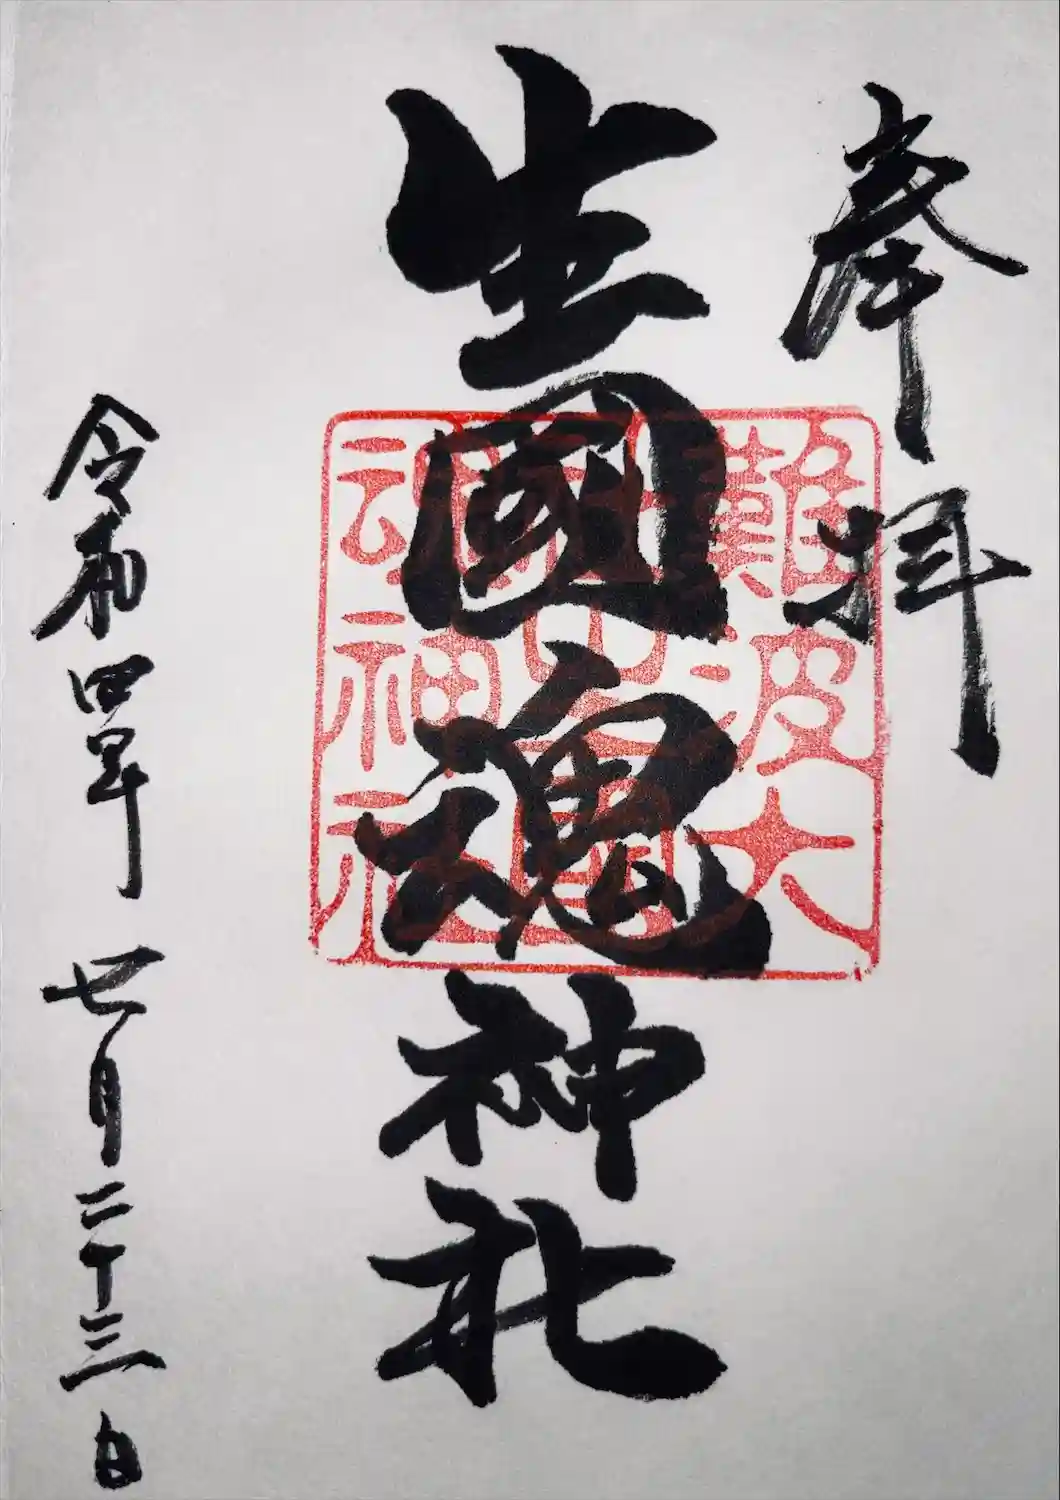 奉拝
生國魂神社
難波大
社生國
魂神社
令和四年 七月二十三日